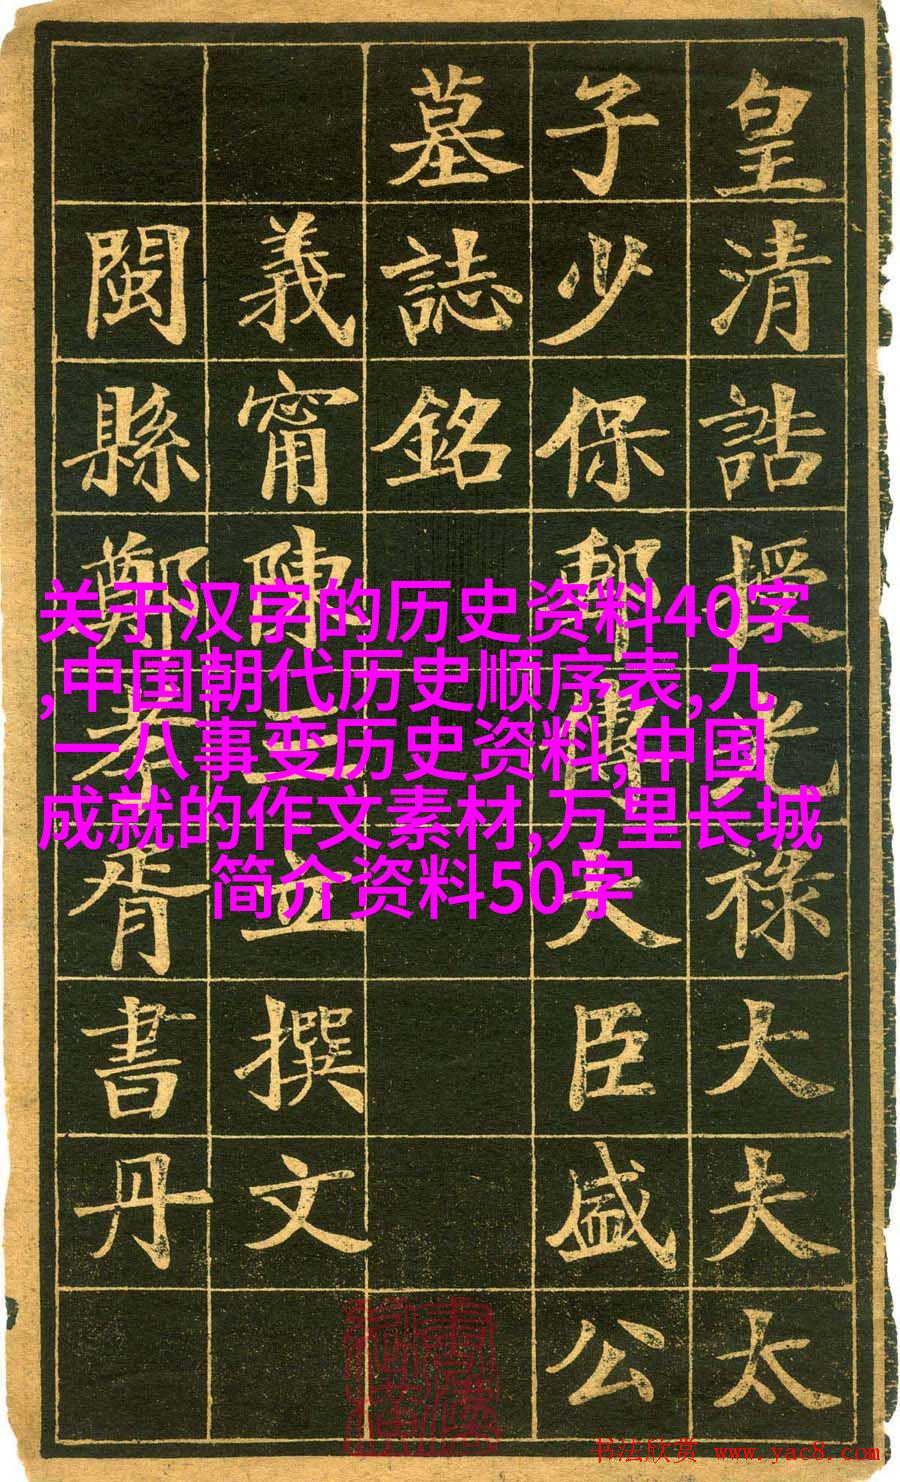 皇清誥授光祿大夫太
子少保郵傳大臣盛公
墓誌銘
義甯陳三立撰文
閩縣鄭孝胥書丹
关于汉字的历史资料40字
,中国朝代历史顺序表,九
一八事变历史资料,中国
成就的作文素材,万里长城
简介资料50字
书法欣赏 www.yac8.com